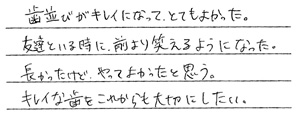 歯並びがキレイになって、とてもよかった。
友達といる時に、前より笑えるようになった。
長かったけど、やってよかったと思う。
キレイな歯をこれからも大切にしたい。